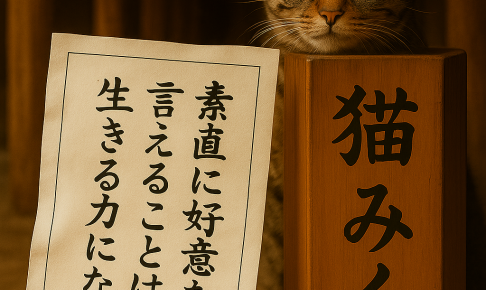 猫みく
素直に好意を
言えることは
生きる力にな